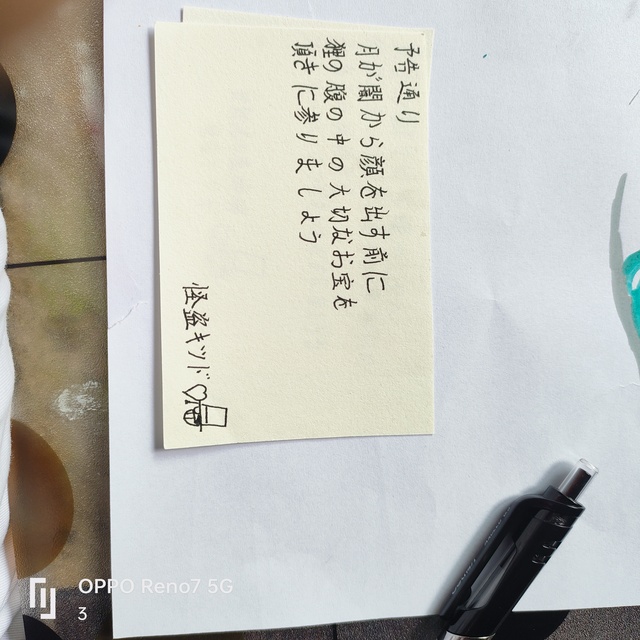 予告通り
月が闇から顔を出す前に
狸の腹の中の大切なお宝を
頂きに参りましょう
怪盗キッド♡
OPPO Reno7 5G
3